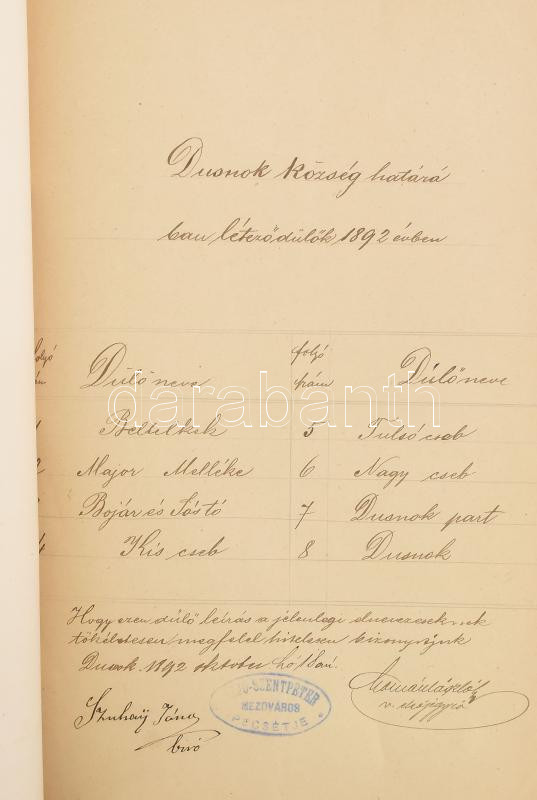 Dusnok község határá
ban létező dülők 1892 évben
folyó
szám
Dülő neve
folyó
szám
Dülő neve
Beltelkek 5 Tulsó cseb
2 Major Melléke 6 Nagy cseb
Bojár és Sóstó 7 Dusnok part
4 Kis cseb 8 Dusnok
darabanth
Hogy ezen dülő leírás a jelenlegi elnevezéseknek
tökéletesen megfelel hitelesen bizonyitjuk
Dusnok 1892 oktober hó 18án.
SZENTPÉTER
MEZŐVÁROS
PECSÉTJE
Szuhay János
biró